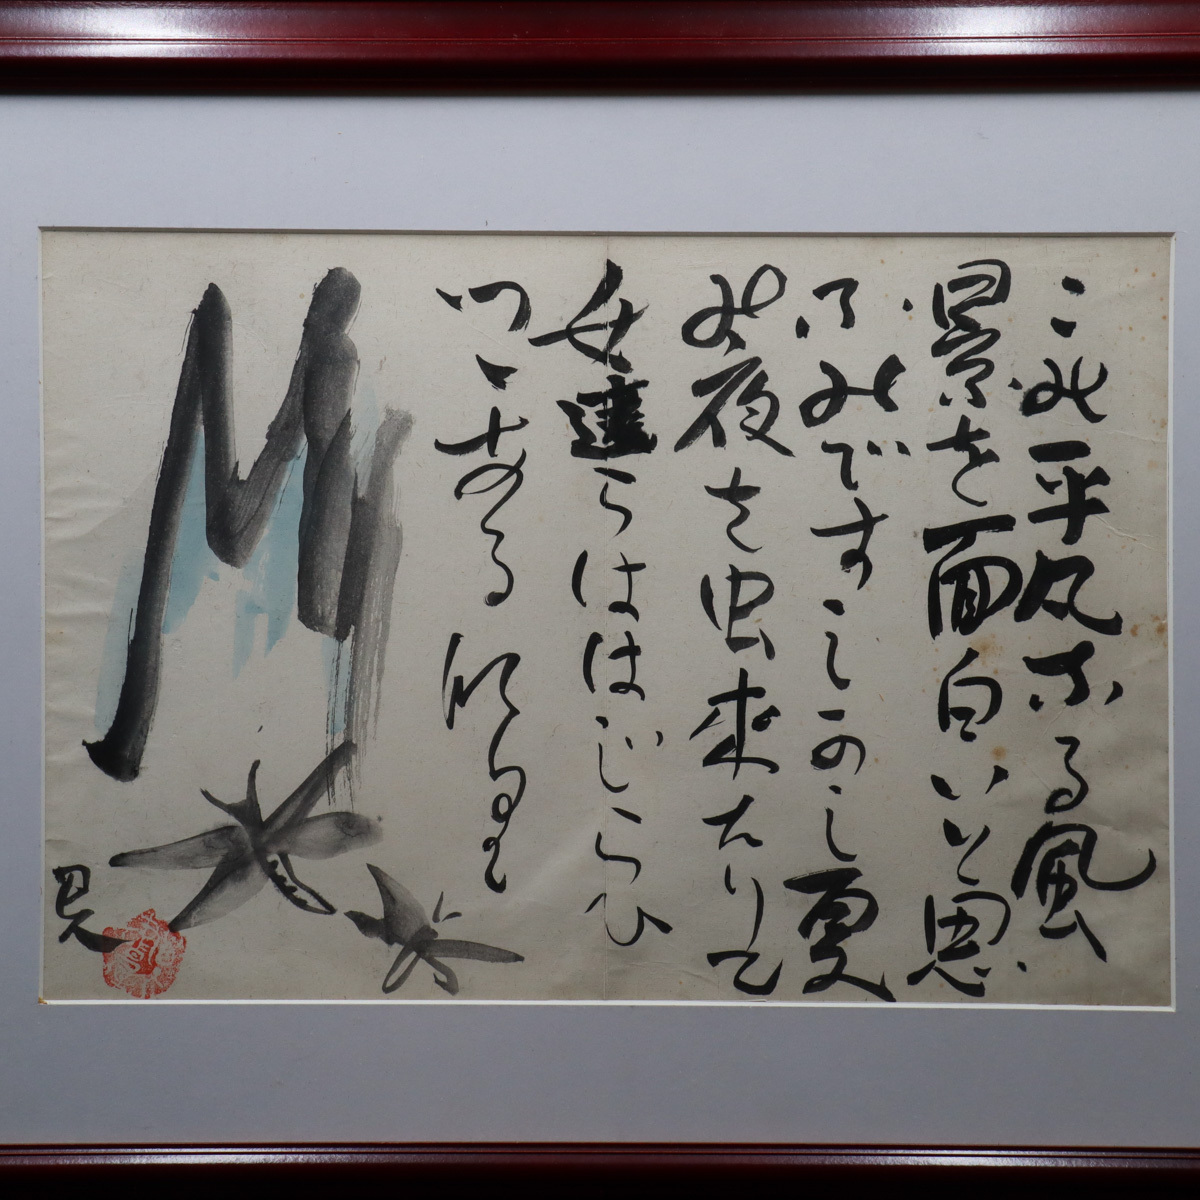 この平凡なる風
景を面白いと思
ふのですしかし夏
の夜を虫来たりて
女達らははじらひ
つゝある